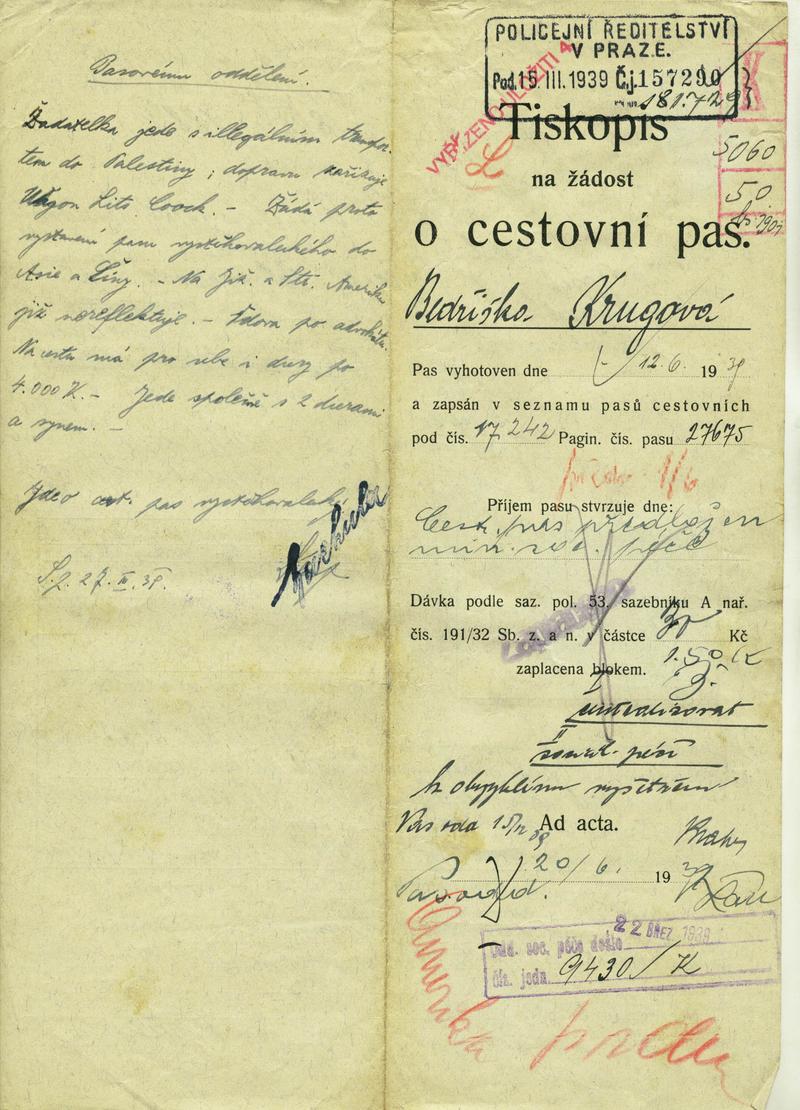 Pasovému oddělení.
Žadatelka jede s illegálním transpor-
tem do Palestiny; dopravu zařizuje
Wagon Lits Coock. – Žádá proto
vystavení pasu vystěhovaleckého do
Asie a Číny. – Na Již. a Stř. Ameriku
již nereflektuje. – Vdova po advokátu.
Na cestu má pro sebe i dcery po
4.000 K. – Jede společně s 2 dcerami
a synem. –
pas vystěhovalecký
27. III. 39.
POLICEJNÍ ŘEDITELSTVÍ
V PRAZE.
Pod. 15. III. 1939 Č.j. 157290
181.729
Tiskopis
na žádost
o cestovní pas.
5060
50
Bedřiška Krugová
Pas vyhotoven dne 12.6. 1939
a zapsán v seznamu pasů cestovních
pod čís. 17.242 Pagin. čís. pasu 27675
Příjem pasu stvrzuje dne:
Cest. pas předložen
min. soc. péče
Dávka podle saz. pol. 53. sazebníku A nař.
čís. 191/32 Sb. z. a n. v částce 30 Kč
zaplacena blokem. 1.50 K
k obvyklému vyšetření
Ad acta.
20/6. 19 39
22 BŘEZ. 1939
Odd. soc. péče došlo
čís. jedn. 9430/K